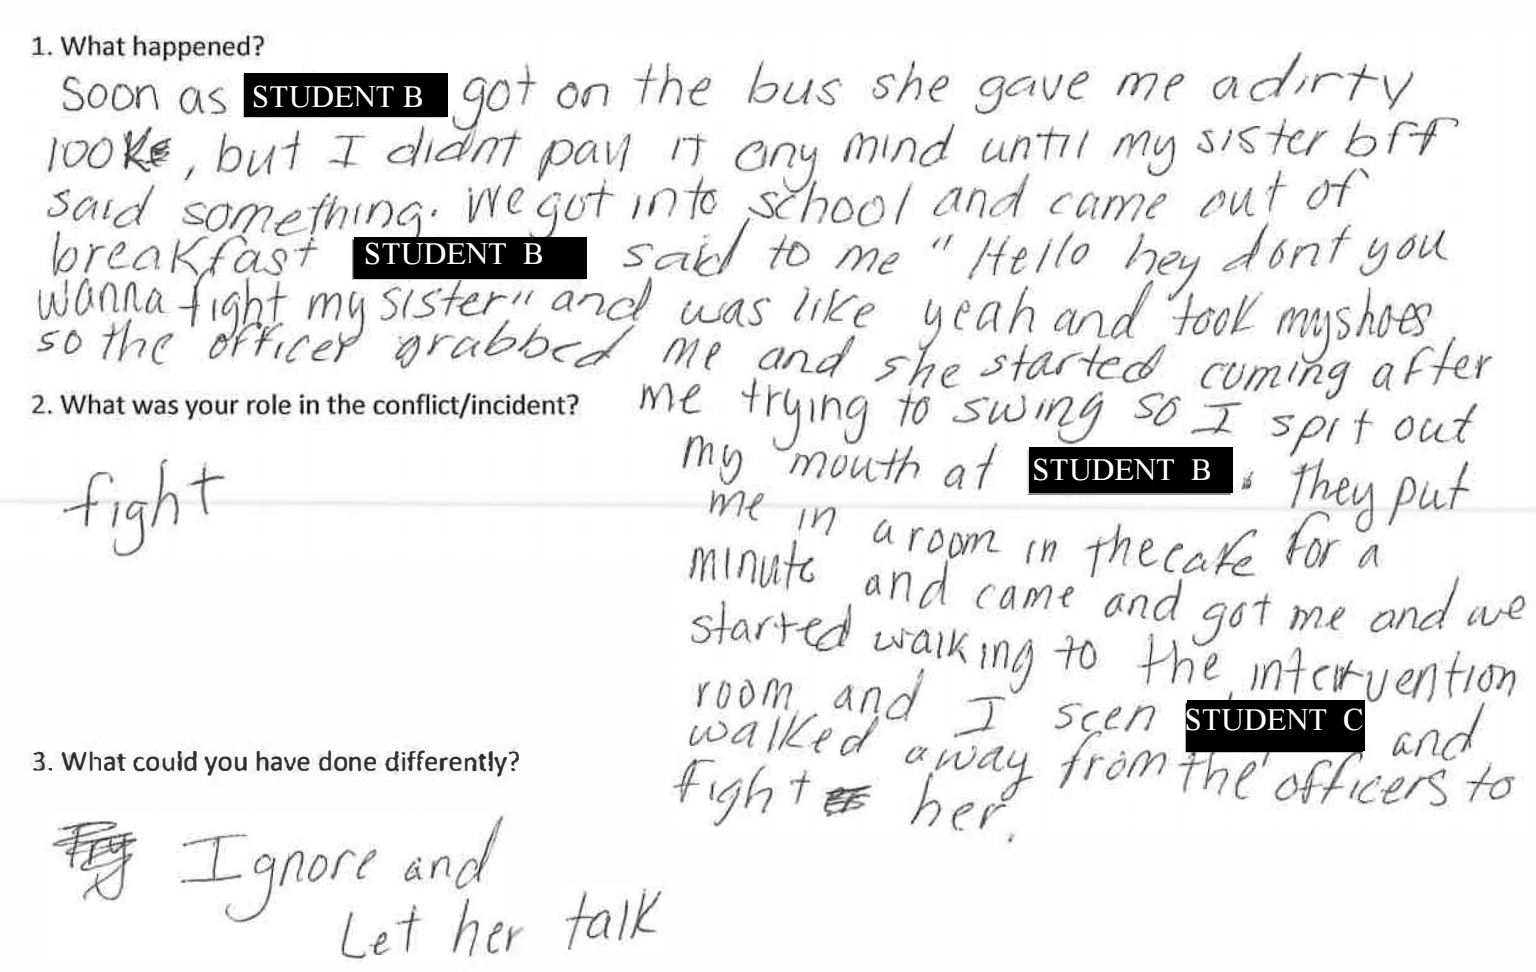 1. What happened?
Soon as STUDENT B got on the bus she gave me a dirty
look, but I didnt pay it any mind until my sister bff
said something. We got into school and came out of
breakfast STUDENT B said to me "Hello hey dont you
wanna fight my sister" and was like yeah and took my shoes
so the officer grabbed me and she started coming after
me trying to swing so I spit out
my mouth at STUDENT B. They put
me in a room in the cafe for a
minute and came and got me and we
started walking to the intervention
room and I seen STUDENT C and
walked away from the officers to
fight her.
2. What was your role in the conflict/incident?
fight
3. What could you have done differently?
Ignore and
Let her talk